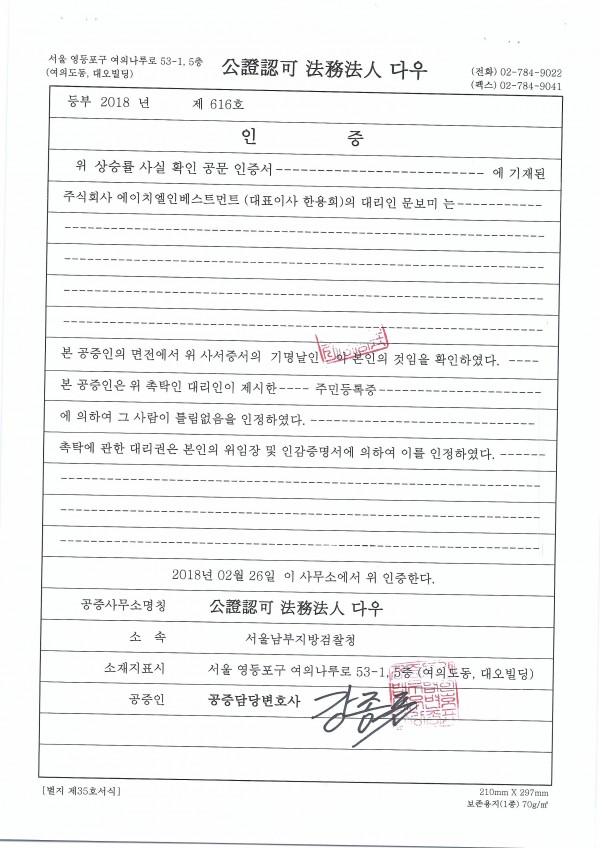 서울 영등포구 여의나루로 53-1, 5층
(여의도동, 대오빌딩)
公證認可 法務法人 다우
(전화) 02-784-9022
(팩스) 02-784-9041
등부 2018 년 제 616호
인 증
위 상승률 사실 확인 공문 인증서------------------------- 에 기재된
주식회사 에이치엘인베스트먼트 (대표이사 한용희)의 대리인 문보미 는-----------
본 공증인의 면전에서 위 사서증서의 기명날인 이 본인의 것임을 확인하였다. ----
본 공증인은 위 촉탁인 대리인이 제시한---- 주민등록증--------------------
에 의하여 그 사람이 틀림없음을 인정하였다. ----------------------------
촉탁에 관한 대리권은 본인의 위임장 및 인감증명서에 의하여 이를 인정하였다. ------
2018년 02월 26일 이 사무소에서 위 인증한다.
공증사무소명칭 公證認可 法務法人 다우
소 속 서울남부지방검찰청
소재지표시 서울 영등포구 여의나루로 53-1, 5층 (여의도동, 대오빌딩)
공증인 공증담당변호사
[별지 제35호서식]
210mm X 297mm
보존용지(1종) 70g/㎡